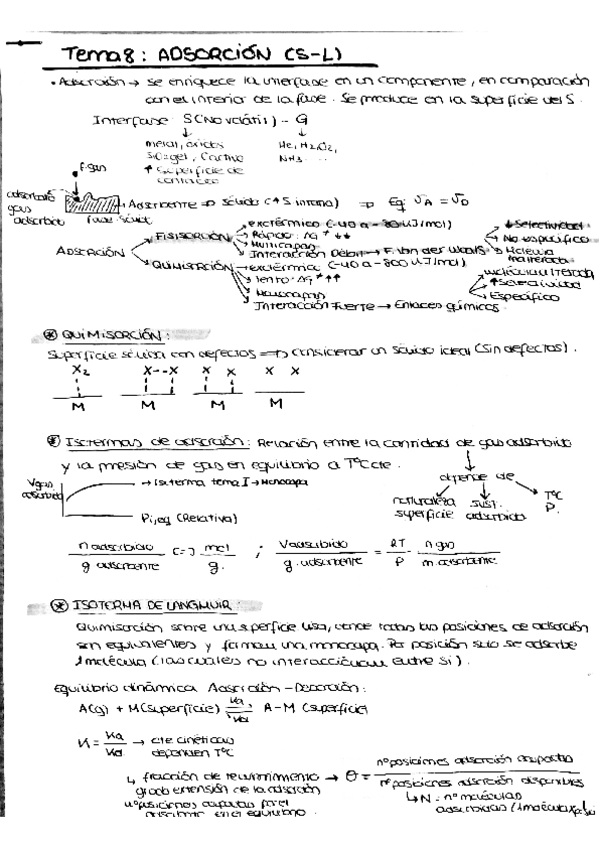 Tema 8: ADSORCIÓN (S-L)
• Adsorción → se enriquece la interfase en un componente, en comparación
con el interior de la fase. Se produce en la superficie del S.
Interfase S(No volátil) - G
↓ ↓
metal, óxidos He, H2, O2,
SiO2gel, Cactivo NH3 ...
↑ Superficie de
contacto
F. gas
adsorbato
gas
adsorbido
Fase sólida
→ Adsorbente ⇒ sólido (↑S interna) ⇒ Eq: VA = VD
ADSORCIÓN
FISISORCIÓN
→ exotérmico (-40 a
→ Rápido: ΔG ↓↓
→ Multicapa
→ Interacción Débil → F. Van der Waals
↓ Selectividad
No específico
QUIMISORCIÓN
→ exotérmica (-40 a -800 kJ/mol)
→ lento: ΔG ↑↑
→ Monocapa
Interacción Fuerte → Enlaces químicos
↑ Selectividad
Específico
⊛ QUIMISORCIÓN:
Superficie sólida con defectos ⇒ considerar un sólido ideal (sin defectos).
X2 X--X X X X X
M M M M
⊛ Isotermas de adsorción: Relación entre la cantidad de gas adsorbido
y la presión de gas en equilibrio a TºC cte.
depende de
naturaleza
superficie
sust.
adsorbida
TºC
P.
Vgas
adsorbido
→ Isoterma tema I → Monocapa
Pi,eq (Relativa)
n adsorbido / g adsorbente [=] mol / g. ; Vadsorbido / g. adsorbente = RT / P · n gas / m. adsorbente
⊛ ISOTERMA DE LANGMUIR:
Quimisorción sobre una superficie lisa, donde todas las posiciones de adsorción
son equivalentes y forman una monocapa. Por posición solo se adsorbe
1 molécula (las cuales no interaccionan entre sí).
Equilibrio dinámico Adsorción - Desorción:
A(g) + M(superficie) ⇌ A-M (superficie)
Ka
Kd
K = Ka / Kd → cte cinéticas
dependen TºC
↳ fracción de recubrimiento → θ = nº posiciones adsorción ocupadas / nº posiciones adsorción disponibles
grado extensión de la adsorción
nº posiciones ocupadas por el
adsorbato en el equilibrio.
↳ N = nº moléculas
adsorbidas